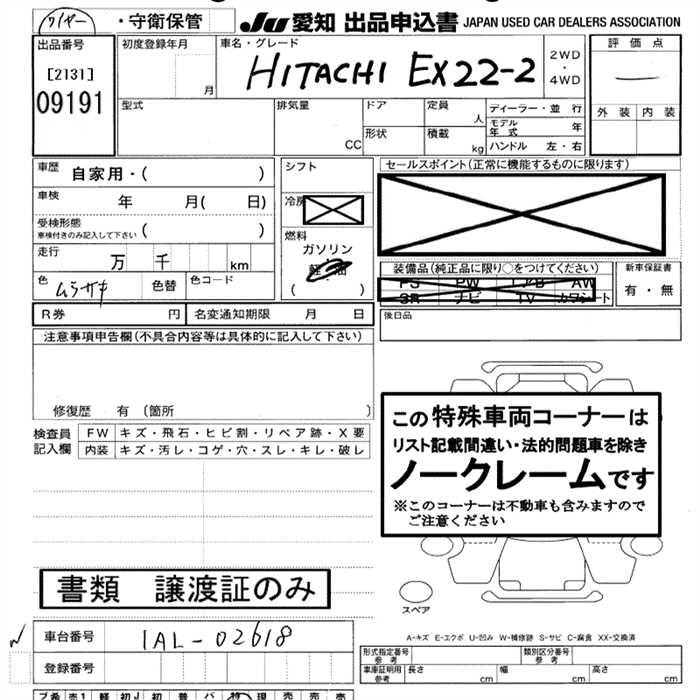 ワイヤー ・守衛保管
JU 愛知 出品申込書 JAPAN USED CAR DEALERS ASSOCIATION
出品番号
[2131]
09191
初度登録年月
月
車名・グレード
HITACHI EX22-2
2WD
・
4WD
評価点
外装 内装
型式
排気量
CC
ドア
形状
定員
人
積載
kg
ディーラー・並行
モデル年式 年
ハンドル 左・右
車歴 自家用・( )
車検 年 月( 日)
受検形態
車検付きのみ記入して下さい ( )
走行 万 千 km
色 ムラサキ 色替 色コード
シフト
冷房
燃料
ガソリン
軽・油
( )
R券 円 名変通知期限 月 日
セールスポイント(正常に機能するものに限ります)
装備品(純正品に限り○をつけてください)
PS PW エアB AW
SR ナビ TV カワシート
新車保証書
有・無
後日品
注意事項申告欄(不具合内容等は具体的に記入して下さい)
修復歴 有 〔箇所 〕
検査員
記入欄
FW キズ・飛石・ヒビ割・リペア跡・X要
内装 キズ・汚レ・コゲ・穴・スレ・キレ・破レ
この特殊車両コーナーは
リスト記載間違い・法的問題車を除き
ノークレームです
※このコーナーは不動車も含みますので
ご注意ください
スペア
書類 譲渡証のみ
車台番号 1AL-02618
登録番号
A-キズ E-エクボ U-凹み W-補修跡 S-サビ C-腐食 XX-交換済
形式指定番号
参考
類別区分番号
参考
車庫証明用
参考
長さ cm 幅 cm 高さ cm